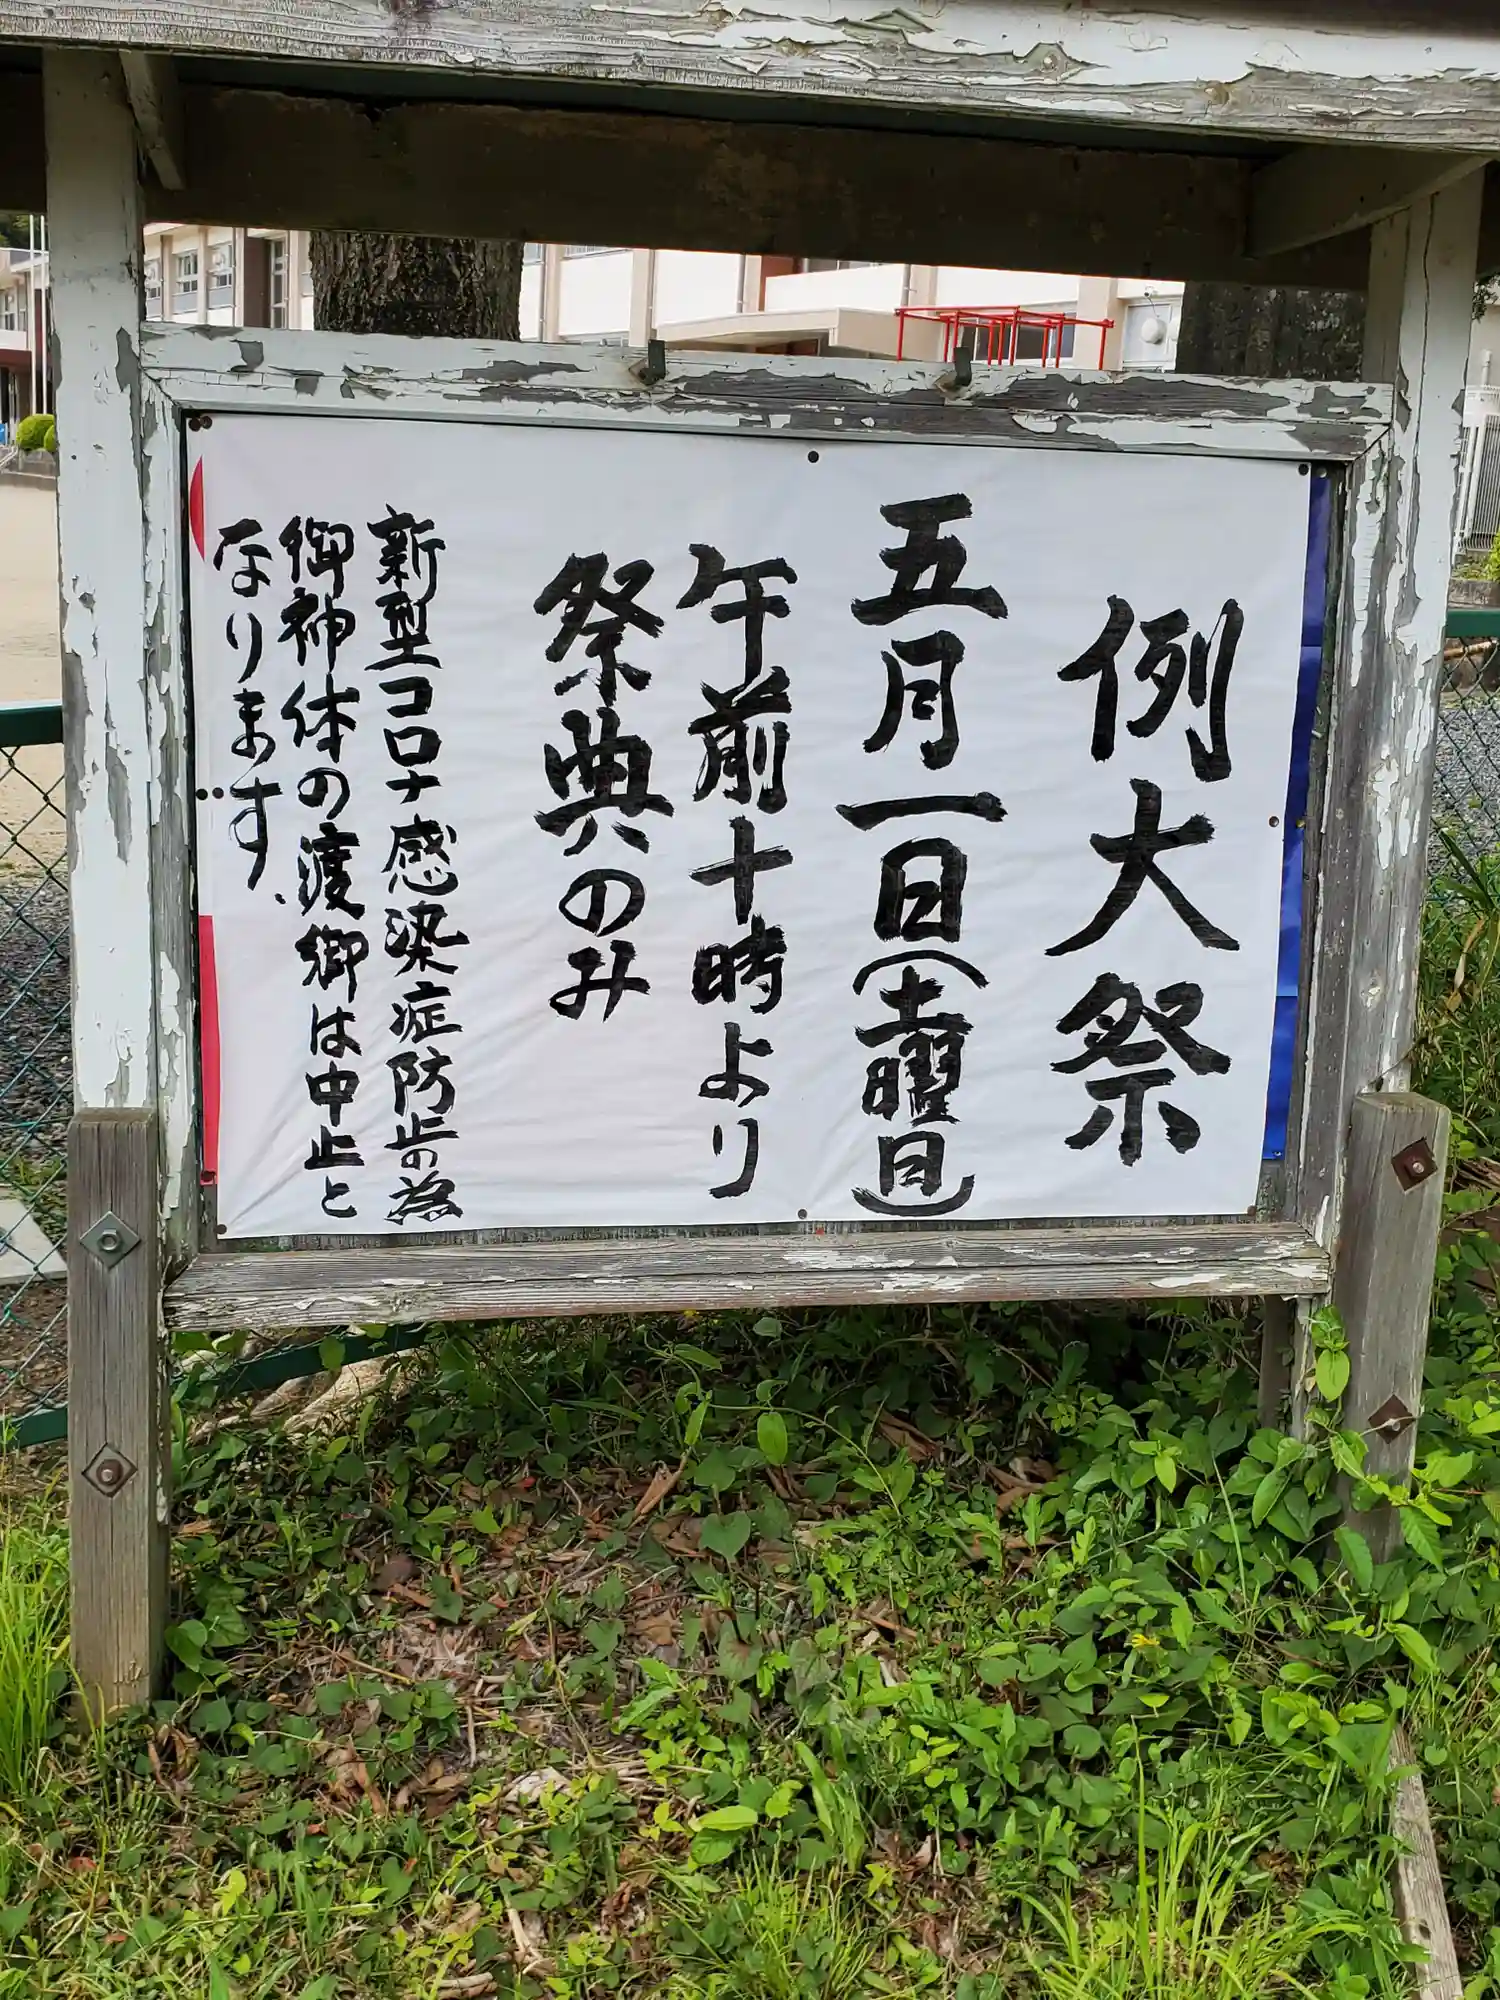 例大祭
五月一日(土曜日)
午前十時より
祭典のみ
新型コロナ感染症防止の為
御神体の渡御は中止と
なります、